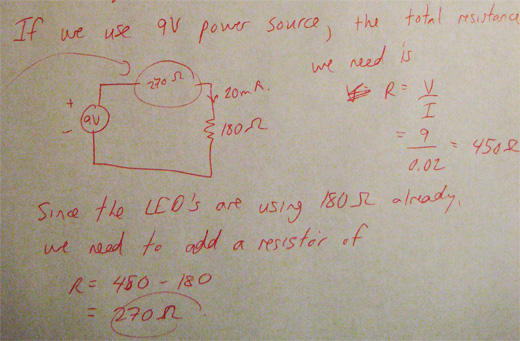 If we use 9V power source, the total resistance
we need is
270 Ω
20mA.
R = V
I
+
9V
-
180Ω
= 9 = 450Ω
0.02
Since the LED's are using 180Ω already,
we need to add a resistor of
R = 450 - 180
= 270Ω